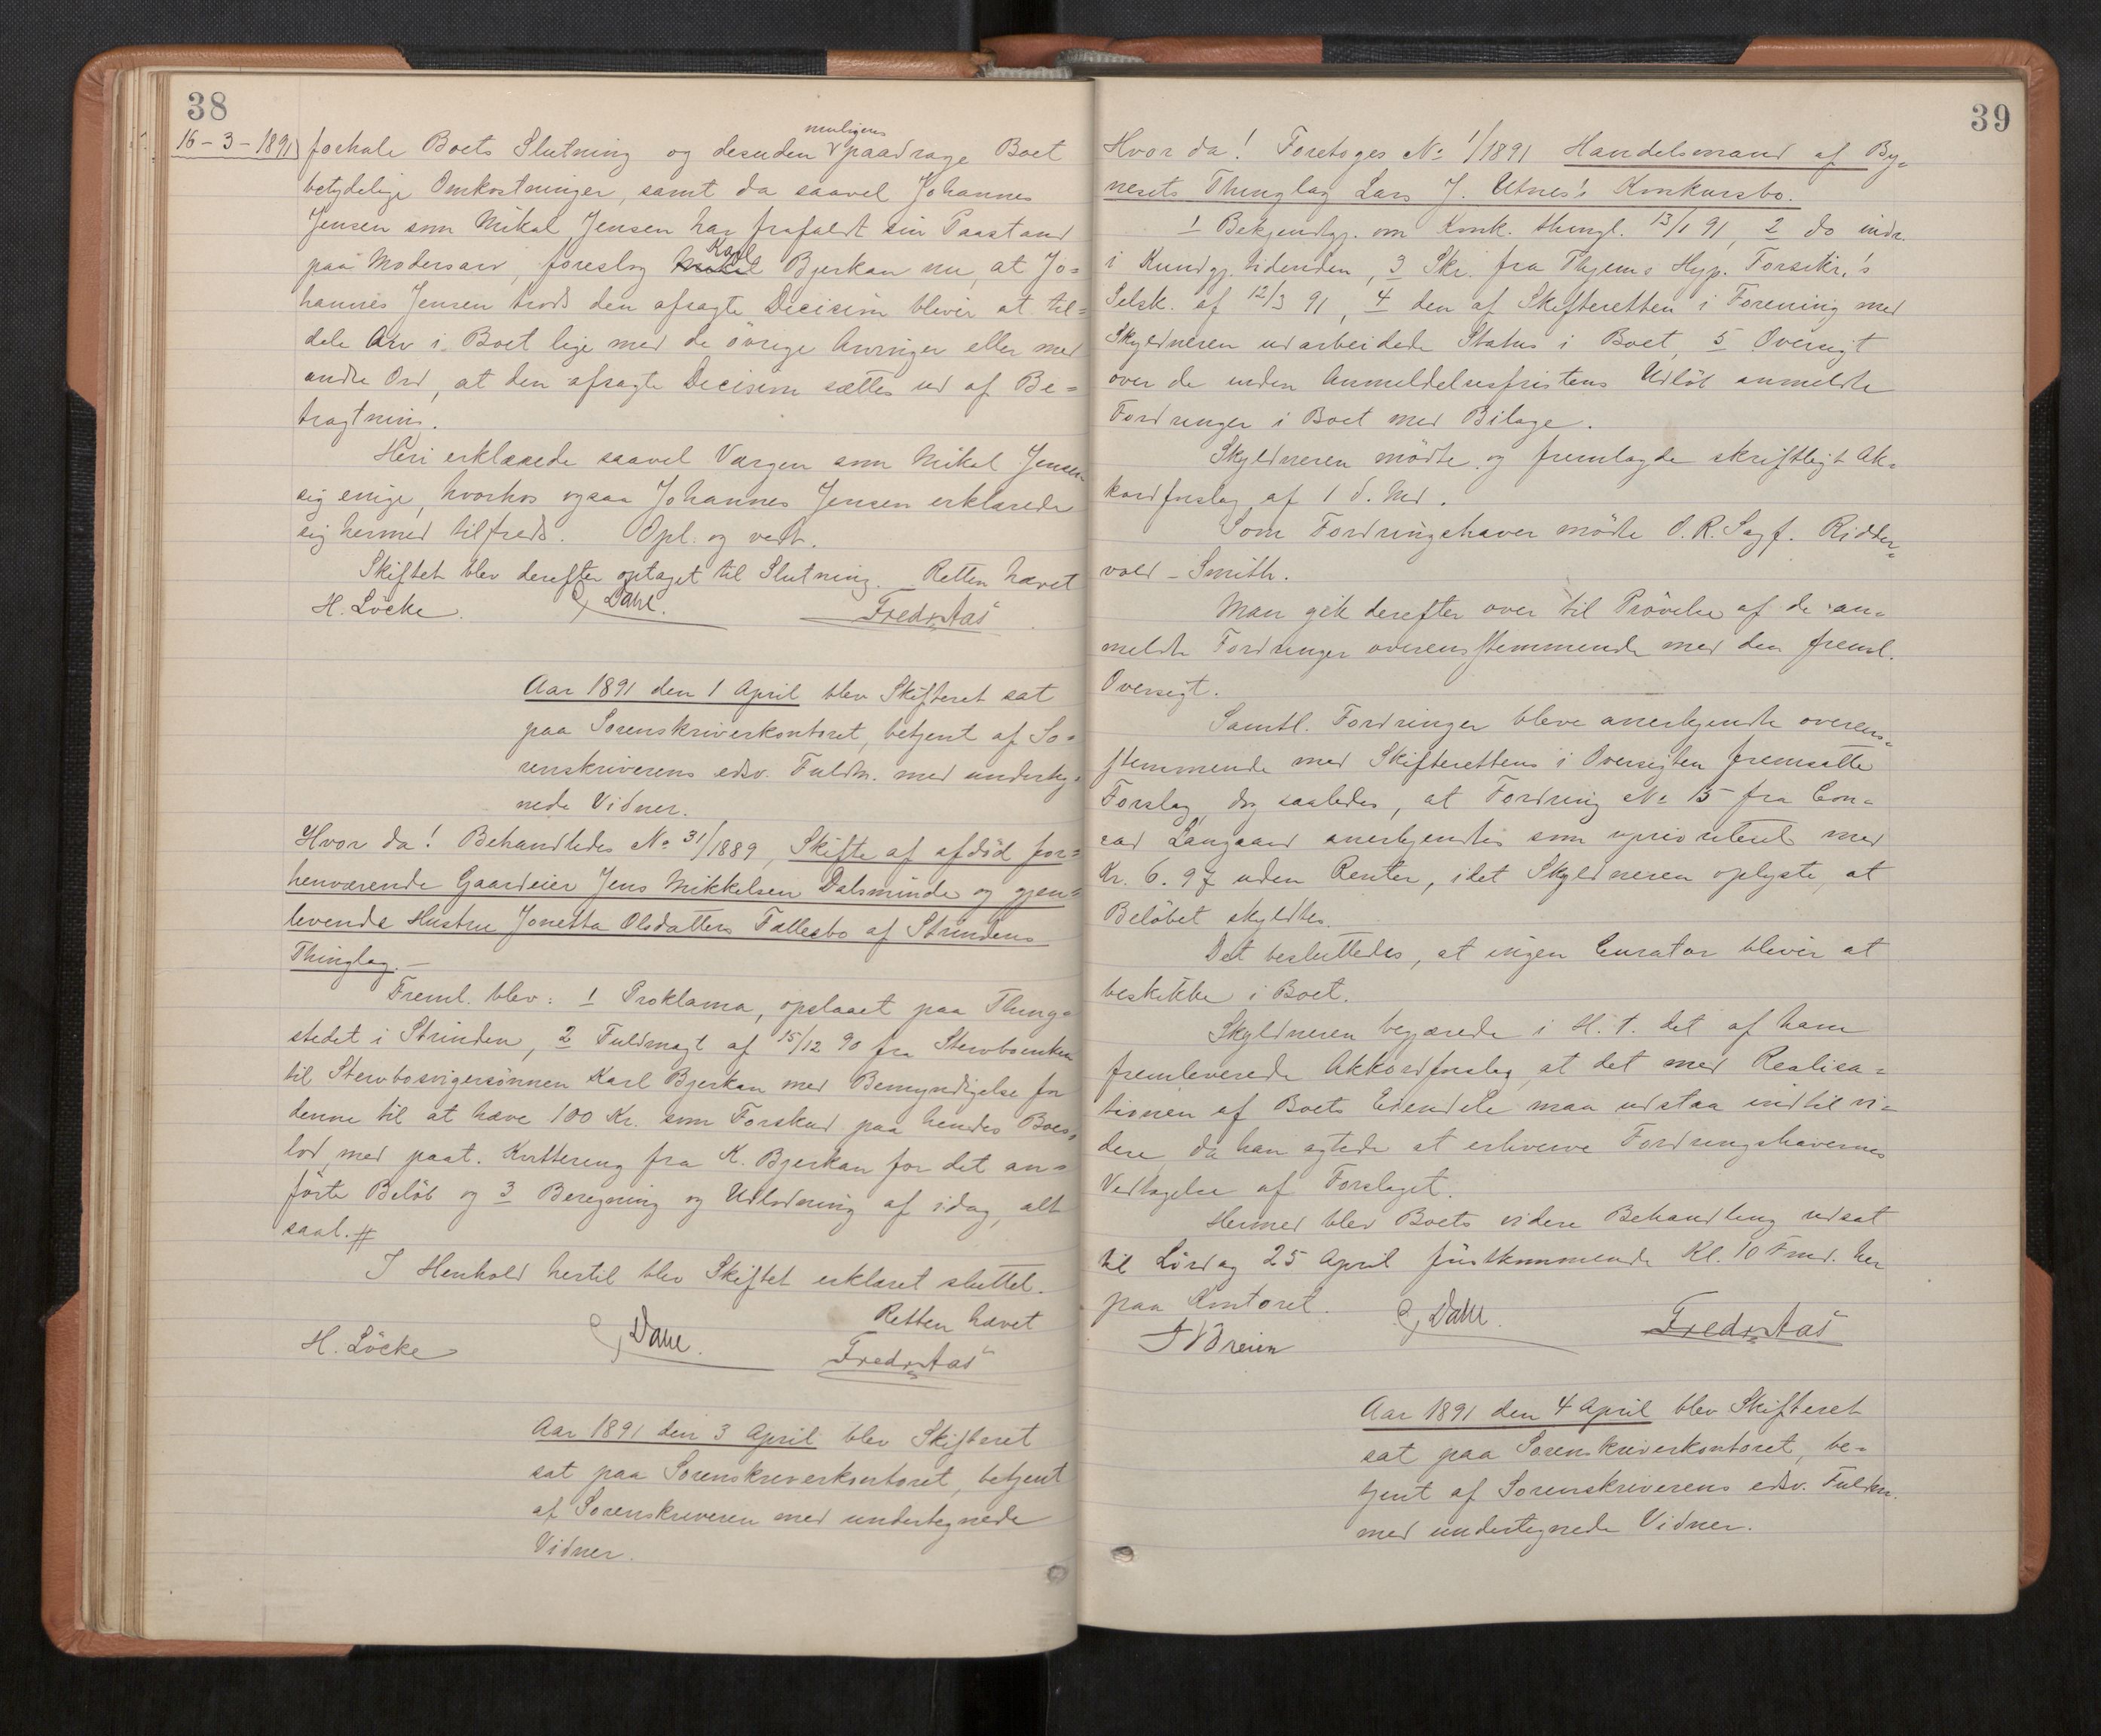 38
16-3-1891
forhale Boets Slutning og desuden muligens paadrage Boet
betydelige Omkostninger, samt da saavel Johannes
Jensen som Mikal Jensen har frafaldt sin Paastand
paa Modersarv, foreslog Karl Bjerkan nu, at Jo=
hannes Jensen trods den afsagte Decision bliver at til=
dele Arv i Boet lige med de övrige Arvinger eller med
andre Ord, at den afsagte Decision sættes ud af Be=
tragtning.
Heri erklærede saavel Værgen som Mikal Jensen
sig enige, hvorhos ogsaa Johannes Jensen erklærede
sig hermed tilfreds. Opl. og vedt.
Skiftet blev derefter optaget til Slutning. Retten hævet
H. Löcke. Dahl. Fredr Aas
Aar 1891 den 1 April blev Skifteret sat
paa Sorenskriverkontoret, betjent af So=
renskriverens edsv. Fuldm. med underteg=
nede Vidner.
Hvor da! Behandledes No 31/1889, Skifte af afdöd for=
henværende Gaardeier Jens Mikkelsen Dalsminde og gjen=
levende Hustru Jonetta Olsdatters Fællesbo af Strindens
Thinglag.
Freml. blev: 1 Proklama, opslaaet paa Thing=
stedet i Strinden, 2 Fuldmagt af 15/12 90 fra Stervboenken
til Stervbosvigersönnen Karl Bjerkan med Bemyndigelse for
denne til at hæve 100 Kr. som Forskud paa hendes Boes=
lod, med paat. Kvittering fra K. Bjerkan for det an=
förte Belöb og 3 Beregning og Udlodning af idag, alt
saal. #
I Henhold hertil blev Skiftet erklæret sluttet.
Retten hævet
H. Löcke Dahl. Fredr Aas
Aar 1891 den 3 April blev Skifteret
sat paa Sorenskriverkontoret, betjent
af Sorenskriveren med undertegnede
Vidner.
39
Hvor da! Foretoges No 1/1891 Handelsmand af By=
nesets Thinglag Lars J. Utnes's Konkursbo.
1 Bekjendtgj. om Konk. thingl. 13/1 91, 2 do indr.
i Kundgj. tidenden, 3 Skr. fra Thjems Hyp. Forsikr.'s
Selsk. af 12/3 91, 4 den af Skifteretten i Forening med
Skyldneren udarbeidede Status i Boet, 5 Oversigt
over de inden Anmeldelsesfristens Udlöb anmeldte
Fordringer i Boet med Bilage.
Skyldneren mödte og fremlagde skriftligt Ak=
kordforslag af 1 d. Md.
Som Fordringshaver mödte O. R. Sagf. Ridder=
vold-Smith.
Man gik derefter over til Prövelse af de an=
meldte Fordringer overensstemmende med den freml.
Oversigt.
Samtl. Fordringer bleve anerkjendte overens=
stemmende med Skifterettens i Oversigten fremsatte
Forslag, dog saaledes, at Fordring No 15 fra Con=
rad Langaard anerkjendtes som uprioriteret med
Kr. 6.97 uden Renter, idet Skyldneren oplyste, at
Belöbet skyldtes.
Det besluttedes, at ingen Curator bliver at
beskikke i Boet.
Skyldneren begjærede i H. t. det af ham
fremleverede Akkordforslag, at det med Realisa=
tionen af Boets Eiendele maa udstaa indtil vi=
dere, da han agtede at erhverve Fordringshavernes
Vedtagelse af Forslaget.
Hermed blev Boets videre Behandling udsat
til Lördag 25 April förstkommende Kl. 10 Fmd. her
paa Kontoret. Dahl. Fredr Aas
Breien
Aar 1891 den 4 April blev Skifteret
sat paa Sorenskriverkontoret, be=
tjent af Sorenskriverens edsv. Fuldm.
med undertegnede Vidner.